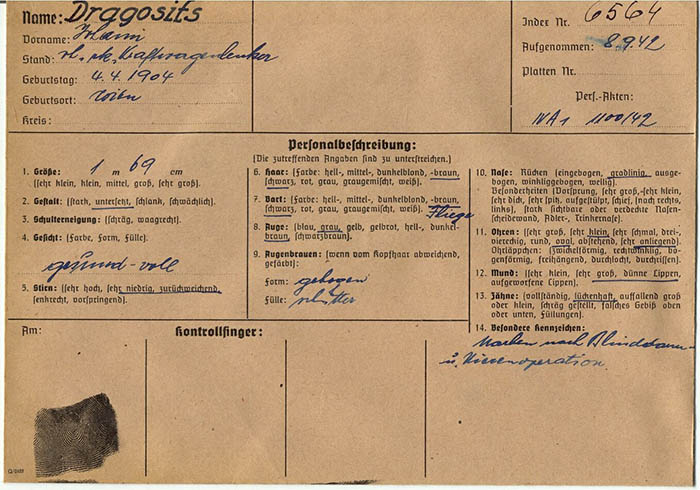 Name: Dragosits
Vorname: Johann
Stand: rk. Kraftwagenlenker
Geburtstag: 4.4.1904
Geburtsort: Wien
Kreis:
Index Nr. 6564
Aufgenommen: 8.9.42
Platten Nr.
Pers.-Akten:
IV A 1 1100/42
Personalbeschreibung:
(Die zutreffenden Angaben sind zu unterstreichen.)
1. Größe: 1 m 69 cm
(sehr klein, klein, mittel, groß, sehr groß).
2. Gestalt: (stark, untersetzt, schlank, schwächlich).
3. Schulterneigung: (schräg, waagrecht).
4. Gesicht: (Farbe, Form, Fülle).
gesund-voll
5. Stirn: (sehr hoch, sehr niedrig, zurückweichend,
senkrecht, vorspringend).
6. Haar: (Farbe: hell-, mittel-, dunkelblond, -braun,
schwarz, rot, grau, graugemischt, weiß).
7. Bart: (Farbe: hell-, mittel-, dunkelblond, -braun,
schwarz, rot, grau, graugemischt, weiß). Fliege
8. Auge: (blau, grau, gelb, gelbrot, hell-, dunkel-
braun, schwarzbraun).
9. Augenbrauen: (wenn vom Kopfhaar abweichend,
gefärbt):
Form: gebogen
Fülle: schütter
10. Nase: Rücken (eingebogen, gradlinig, ausge-
bogen, winkliggebogen, wellig).
Besonderheiten (Vorsprung, sehr groß,-sehr klein,
sehr dick, sehr spitz, aufgestülpt, schief, (nach rechts,
links), stark sichtbare oder verdeckte Nasen-
scheidewand, Adler-, Trinkernase).
11. Ohren: (sehr groß, sehr klein, sehr schmal, drei-,
viereckig, rund, oval, abstehend, sehr anliegend).
Ohrläppchen: (zwickelförmig, rechtwinklig, abwärts-
bogenförmig, freihängend, durchlocht, durchrissen).
12. Mund: (sehr klein, sehr groß, dünne Lippen,
aufgeworfene Lippen).
13. Zähne: (vollständig, lückenhaft, auffallend groß
oder klein, schräg gestellt, falsches Gebiß oben
oder unten, Füllungen).
14. Besondere Kennzeichen:
Narben nach Blinddarm-
u. Nierenoperation.
Am:
Kontrollfinger: